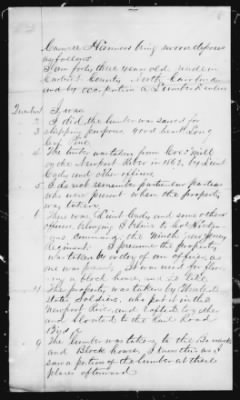 being sworn deposes
as follows
I am forty three years old, reside in
Carteret County, North Carolina
and by occupation a Lumber dealer
Question 1. I was
2. I did the lumber was sawed for
3 shipping purpose good heart Long
leaf Pine
4. The lumber was taken from Coe's Mill
on the Newport River in 1862, by Lieut
and other officers
5. I do not remember particular parties
who were present when the property
was taken
6. There was Lieut and some other
officers belonging I believe to
command, the Ninth New Jersey
Regiment. I presume the property
was taken by order of an officer, as
one was present. It was used for
a block house and
The property was taken by United
States Soldiers, who put it in the
Newport River, and rafted together
and floated to the Rail Road
Bridge
9 The lumber was taken to the Barracks
and Block house, I saw this as I
saw a portion of the lumber at these
places afterward